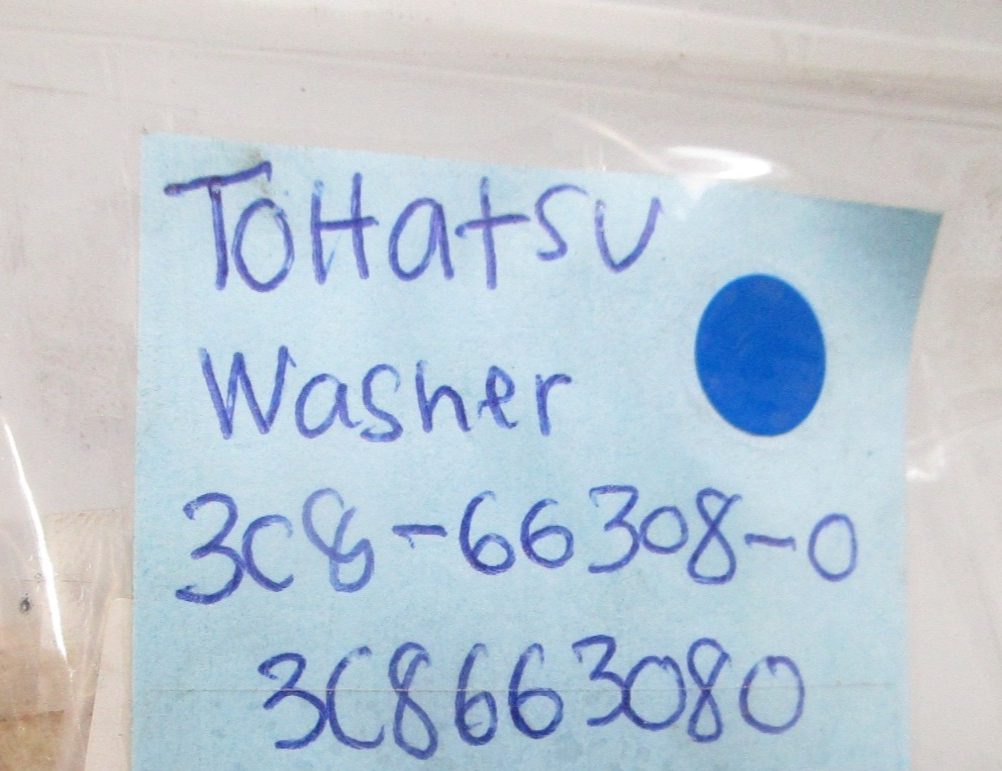 ToHatsu
Washer
3C8-66308-0
3C8663080